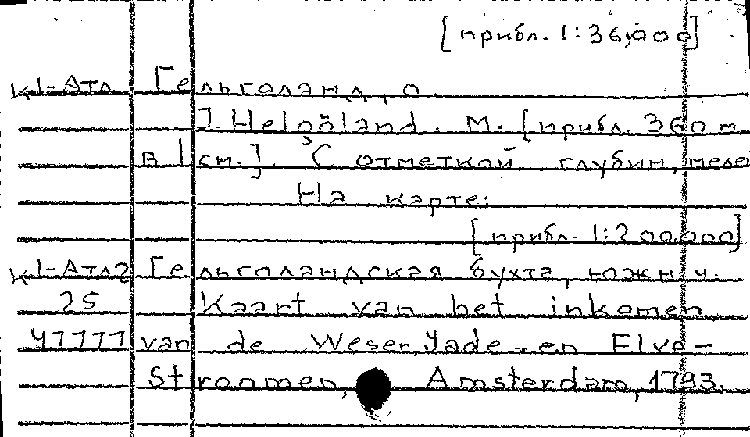 [прибл. 1:36,000]
К1-Атл Гельголанд, о.
J. Helgöland. М. [прибл. 360 m.
в 1 см.]. С отметкой глубин, меле
На карте:
[прибл. 1:200,000]
К1-Атл2 Гельголандская бухта, южн. ч.
25 Kaart van het inkomen
47777 van de Weser, Jade- en Elve-
Stroomen, Amsterdam, 1793.